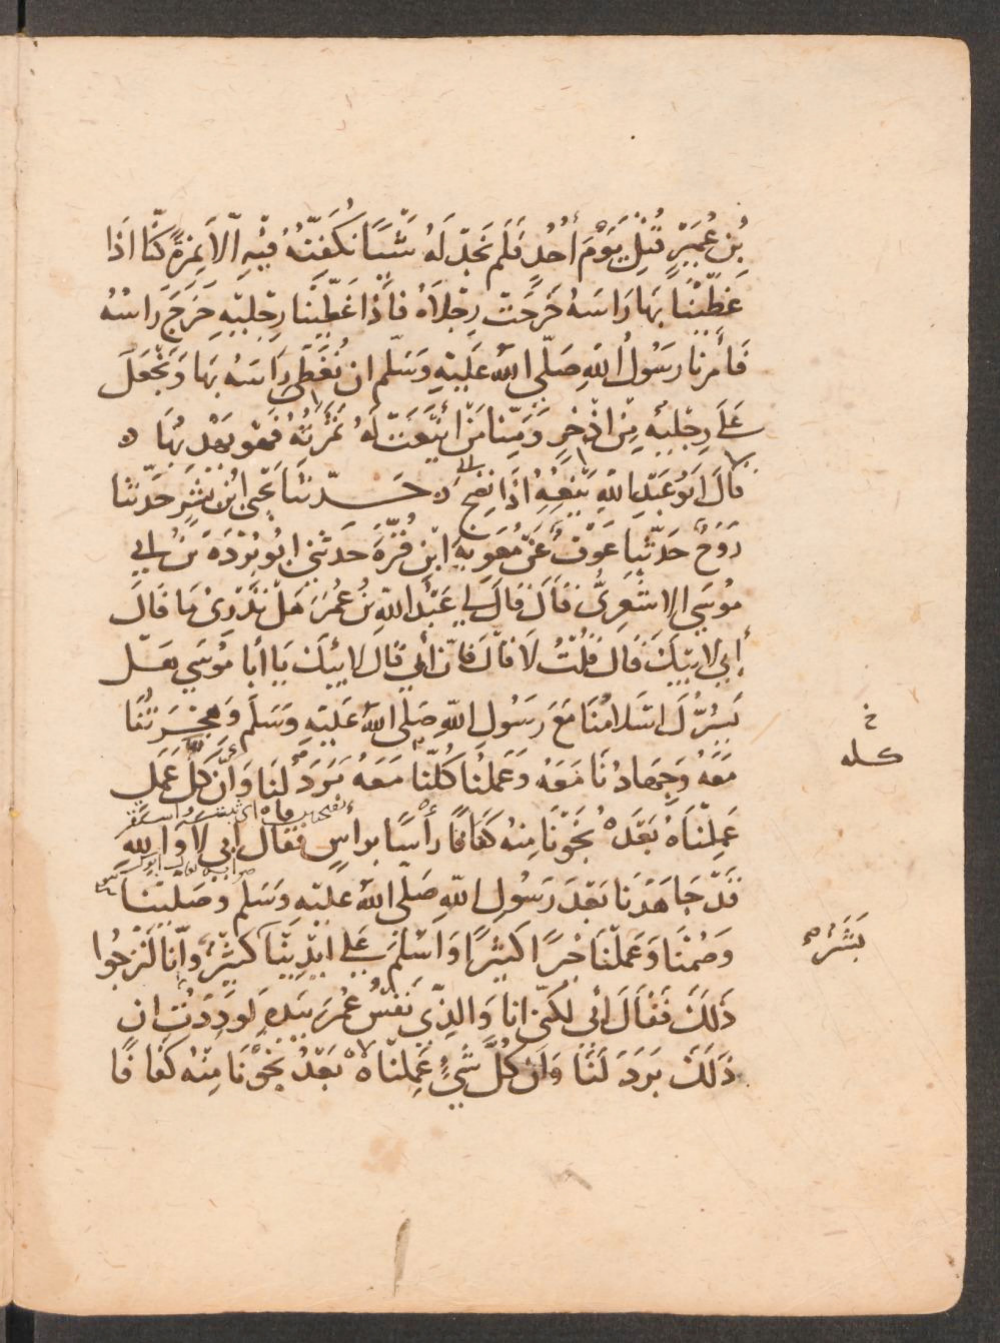 بْنِ عُمَيْرٍ قُتِلَ يَوْمَ أُحُدٍ فَلَم نَجِدْ لَهُ شَيْئًا نُكَفِّنُهُ فيْهِ اِلّا نَمِرَةً كُنَّا اذَا
غَطَّيْنَا بِهَا رَاسَهُ خَرَجَتْ رِجْلَاهُ فَاِذَا غَطَّيْنَا رِجْلَيْهِ خَرَجَ رَاسُهُ
فَأمَرَنَا رَسُولُ اللهِ صَلّى اللهُ عَلَيْهِ وَسَلّم ان نُغَطِّى رَاسَهُ بهَا وَنَجْعَلَ
عَلَى رِجْلَيْهِ مِنْ اذْخِرٍ وَمِنّا مَنْ أيْنَعَتْ لَهُ ثَمَرَتُهُ فَهو يَهْدِبُهَا ه
قَالَ ابُو عَبْدِ اللهِ يَنْعِهِ اذَا نَضِجَ ه حَدّثَنَا يَحْيَى ابْنُ بِشْرٍ حَدّثَنا
رَوْحٌ حَدّثَنا عَوْفٌ عَنْ مُعَوِيةَ ابْنِ قُرَّةَ حَدثَنِى ابُو بُرْدَةَ بْنُ ابِى
مُوسَى الاشْعَرِىّ قَالَ قَالَ لِى عَبْدُ اللهِ بْنُ عُمَرَ هَلْ تَدْرِىْ مَا قَالَ
أبِى لابِيْكَ قَالَ قُلْتُ لَا قَالَ فَاِنّ أبِى قَالَ لابِيْكَ يَا أبَا مُوسَى هَلْ
يَسُرُّكَ اسْلامُنَا مَعَ رَسُولِ اللهِ صَلى اللهُ عَلَيْهِ وَسَلَّم وَهِجْرَتُنَا
مَعَهُ وَجِهَادُنَا مَعَهُ وَعَمَلُنَا كُلُّنَا مَعَهُ بَرَدَ لَنَا وَأنَّ كُلَّ عَمَلٍ
خ
كله
عَمِلْنَاهُ بَعْدَهُ نَجَوْنَا مِنْهُ كَفَافًا رَأْسًا برَأْسٍ فَقَالَ ابِى لَا وَاللهِ
قَدْ جَاهَدْنَا بَعْدَ رَسُولِ اللهِ صَلّى اللهُ عَلَيْهِ وَسَلّم وَصَلَّيْنَا
وَصُمْنَا وَعَمِلْنَا خَيْرًا كَثِيْرًا وَاسْلَمَ عَلَى ايْدِيْنَا كَثِيْرٌ وَاِنّا لَنَرْجُوا
بَشَرٌ صح
ذَلِكَ فَقَالَ أبِى لكِنِّى انَا وَالذِّى نَفْسُ عُمَرَ بِيَدِهِ لَوَدِدْتُ ان
ذَلِكَ بَرَدَ لَنَا وَان كُلَّ شَىْءٍ عَمِلْنَاهُ بَعْدُ نَجَوْنَا مِنْهُ كَفَافًا